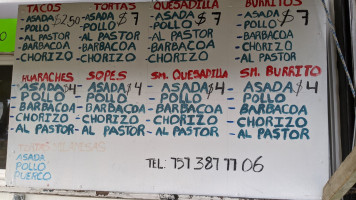 TACOS TORTAS QUESADILLA BURRITOS
-ASADA $2.50 -ASADA $7 -ASADA $7 -ASADA $7
-POLLO -POLLO -POLLO -POLLO
-AL PASTOR -AL PASTOR -AL PASTOR -AL PASTOR
-BARBACOA -BARBACOA -BARBACOA -BARBACOA
-CHORIZO -CHORIZO -CHORIZO -CHORIZO
HUARACHES SOPES SM. QUESADILLA SM. BURRITO
-ASADA $4 -ASADA $4 -ASADA $4 -ASADA $4
-POLLO -POLLO -POLLO -POLLO
-BARBACOA -BARBACOA -BARBACOA -BARBACOA
-CHORIZO -CHORIZO -CHORIZO -CHORIZO
-AL PASTOR -AL PASTOR -AL PASTOR -AL PASTOR
ASADA
POLLO
PUERCO
TEL: 757 387 77 06